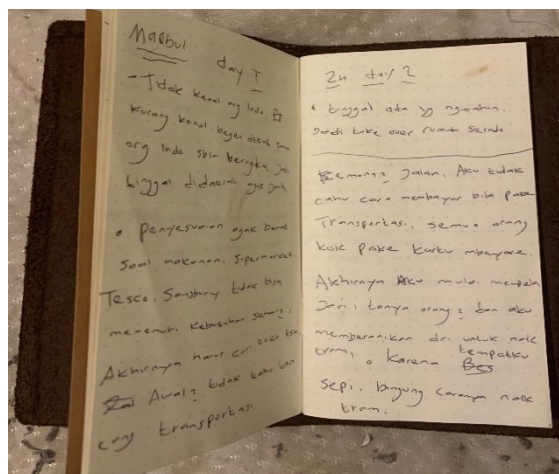 Maqbul day 1
- Tidak kenal org Indo.
kurang kenal begitu dekat sama
org Indo sblm berangkat. jadi
tinggal didaerah agak jauh
• penyesuaian agak berat
soal makanan. Supermarket
Tesco. Sainsbury tidak bisa
memenuhi kebutuhan
Akhirnya harus cari toko
Awal2 tidak tahu ten
tang transportasi
2n day 2
• tinggal ada yg
jadi take over rumah
jalan. Aku tidak
tahu cara membayar bila pake
Transportasi. semua orang
kok pake kartu mbayare.
Akhirnya Aku mulai
Jari: tanya orang2 dan aku
memberanikan diri untuk naik
tram. Karena tempatku
sepi, bingung caranya naik
tram.